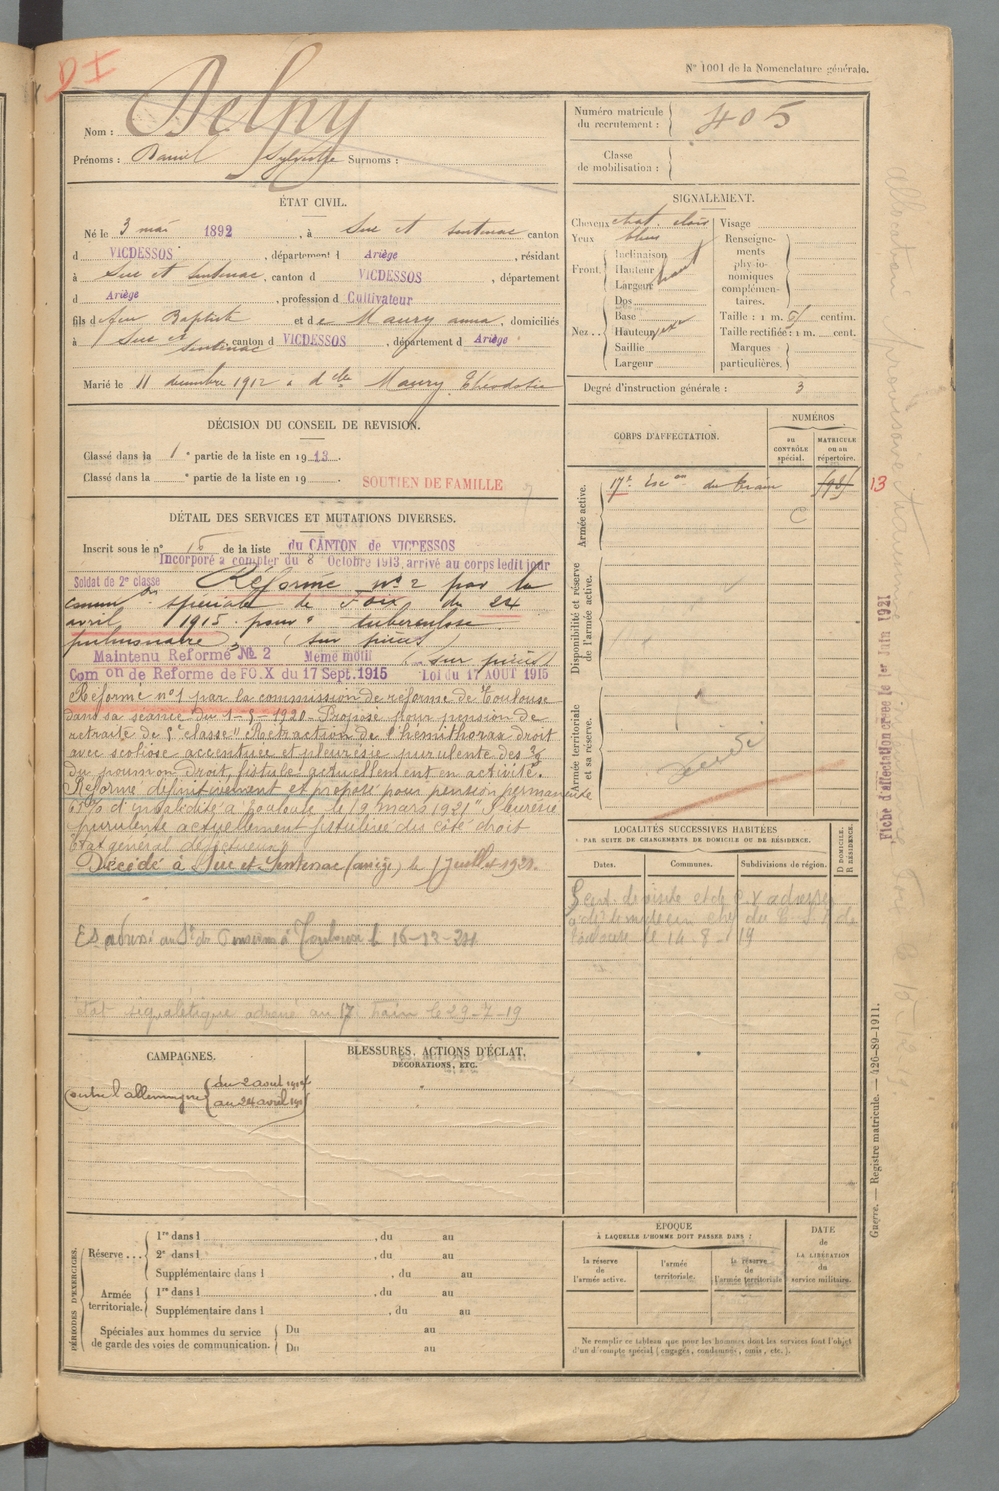 D I
N° 1001 de la Nomenclature générale.
Nom : Delpy
Prénoms : Daniel Sylvestre Surnoms :
Numéro matricule du recrutement : 405
Classe de mobilisation :
ÉTAT CIVIL.
Né le 3 mai 1892, à Suc et Sentenac canton
d VICDESSOS, département d Ariège, résidant
à Suc et Sentenac, canton d VICDESSOS, département
d Ariège, profession d Cultivateur
fils de feu Baptiste et de Maury anna, domiciliés
à Suc et Sentenac canton d VICDESSOS, département d Ariège
Marié le 11 décembre 1912 à dlle Maury Théodosie
SIGNALEMENT.
Cheveux chat. clair
Yeux bleus
Front. Inclinaison
Hauteur haut
Largeur
Nez . . Dos
Base
Hauteur
Saillie
Largeur
Visage
Renseignements physionomiques complémentaires.
Taille : 1 m. centim.
Taille rectifiée : 1 m. cent.
Marques particulières.
Degré d'instruction générale : 3
DÉCISION DU CONSEIL DE REVISION.
Classé dans la 1e partie de la liste en 1913.
Classé dans la e partie de la liste en 19
SOUTIEN DE FAMILLE
DÉTAIL DES SERVICES ET MUTATIONS DIVERSES.
Inscrit sous le n° 16 de la liste du CANTON de VICDESSOS
Incorporé à compter du 8 Octobre 1913, arrivé au corps ledit jour
Soldat de 2e classe Réformé n° 2 par la
comm on spéciale de Foix du 24
avril 1915 pour tuberculose
pulmonaire (sur pièces)
Maintenu Reformé No. 2 Même motif sur pièces
Com on de Reforme de FOIX du 17 Sept. 1915 Loi du 17 AOUT 1915
Réformé n° 1 par la commission de réforme de Toulouse
dans sa séance du 1- -1920. Proposé pour pension de
retraite de classe "Rétraction de l'hémithorax droit
avec scoliose accentuée et pleurésie purulente des
du poumon droit, fistule actuellement en activité.
Réformé définitivement et proposé pour pension permanente
65% d'invalidité à Toulouse, le 19 mars 1921 "Pleurésie
purulente actuellement fistulisée du côté droit
état général défectueux
Décédé à Suc et Sentenac (ariège) le 1 Juillet 1921.
ES adressé au des Pensions à Toulouse le 16-12-21
état signalétique adressé au 17 train le 29-7-19
CORPS D'AFFECTATION.
NUMÉROS
au CONTRÔLE spécial.
MATRICULE ou au répertoire.
Armée active.
17e Esc on du train
13
Disponibilité et réserve de l'armée active.
Armée territoriale et sa réserve.
LOCALITÉS SUCCESSIVES HABITÉES
PAR SUITE DE CHANGEMENTS DE DOMICILE OU DE RÉSIDENCE.
Dates.
Communes.
Subdivisions de région.
D DOMICILE. R RÉSIDENCE.
Toulouse le 14-8-19
CAMPAGNES.
Contre l'allemagne du 2 aout 1914
au 24 avril 1915
BLESSURES, ACTIONS D'ÉCLAT,
DÉCORATIONS, ETC.
PÉRIODES D'EXERCICES.
Réserve . . .
1re dans l , du au
2e dans l , du au
Supplémentaire dans l , du au
Armée territoriale.
1re dans l , du au
Supplémentaire dans l , du au
Spéciales aux hommes du service
de garde des voies de communication.
Du au
Du au
ÉPOQUE
À LAQUELLE L'HOMME DOIT PASSER DANS :
la réserve de l'armée active.
l'armée territoriale.
la réserve de l'armée territoriale
DATE de LA LIBÉRATION du service militaire.
Ne remplir ce tableau que pour les hommes dont les services font l'objet
d'un décompte spécial (engagés, condamnés, omis, etc.).
Fiche d'affectation créée le 1er Juin 1921
Guerre. — Registre matricule. — 426-89-1911.